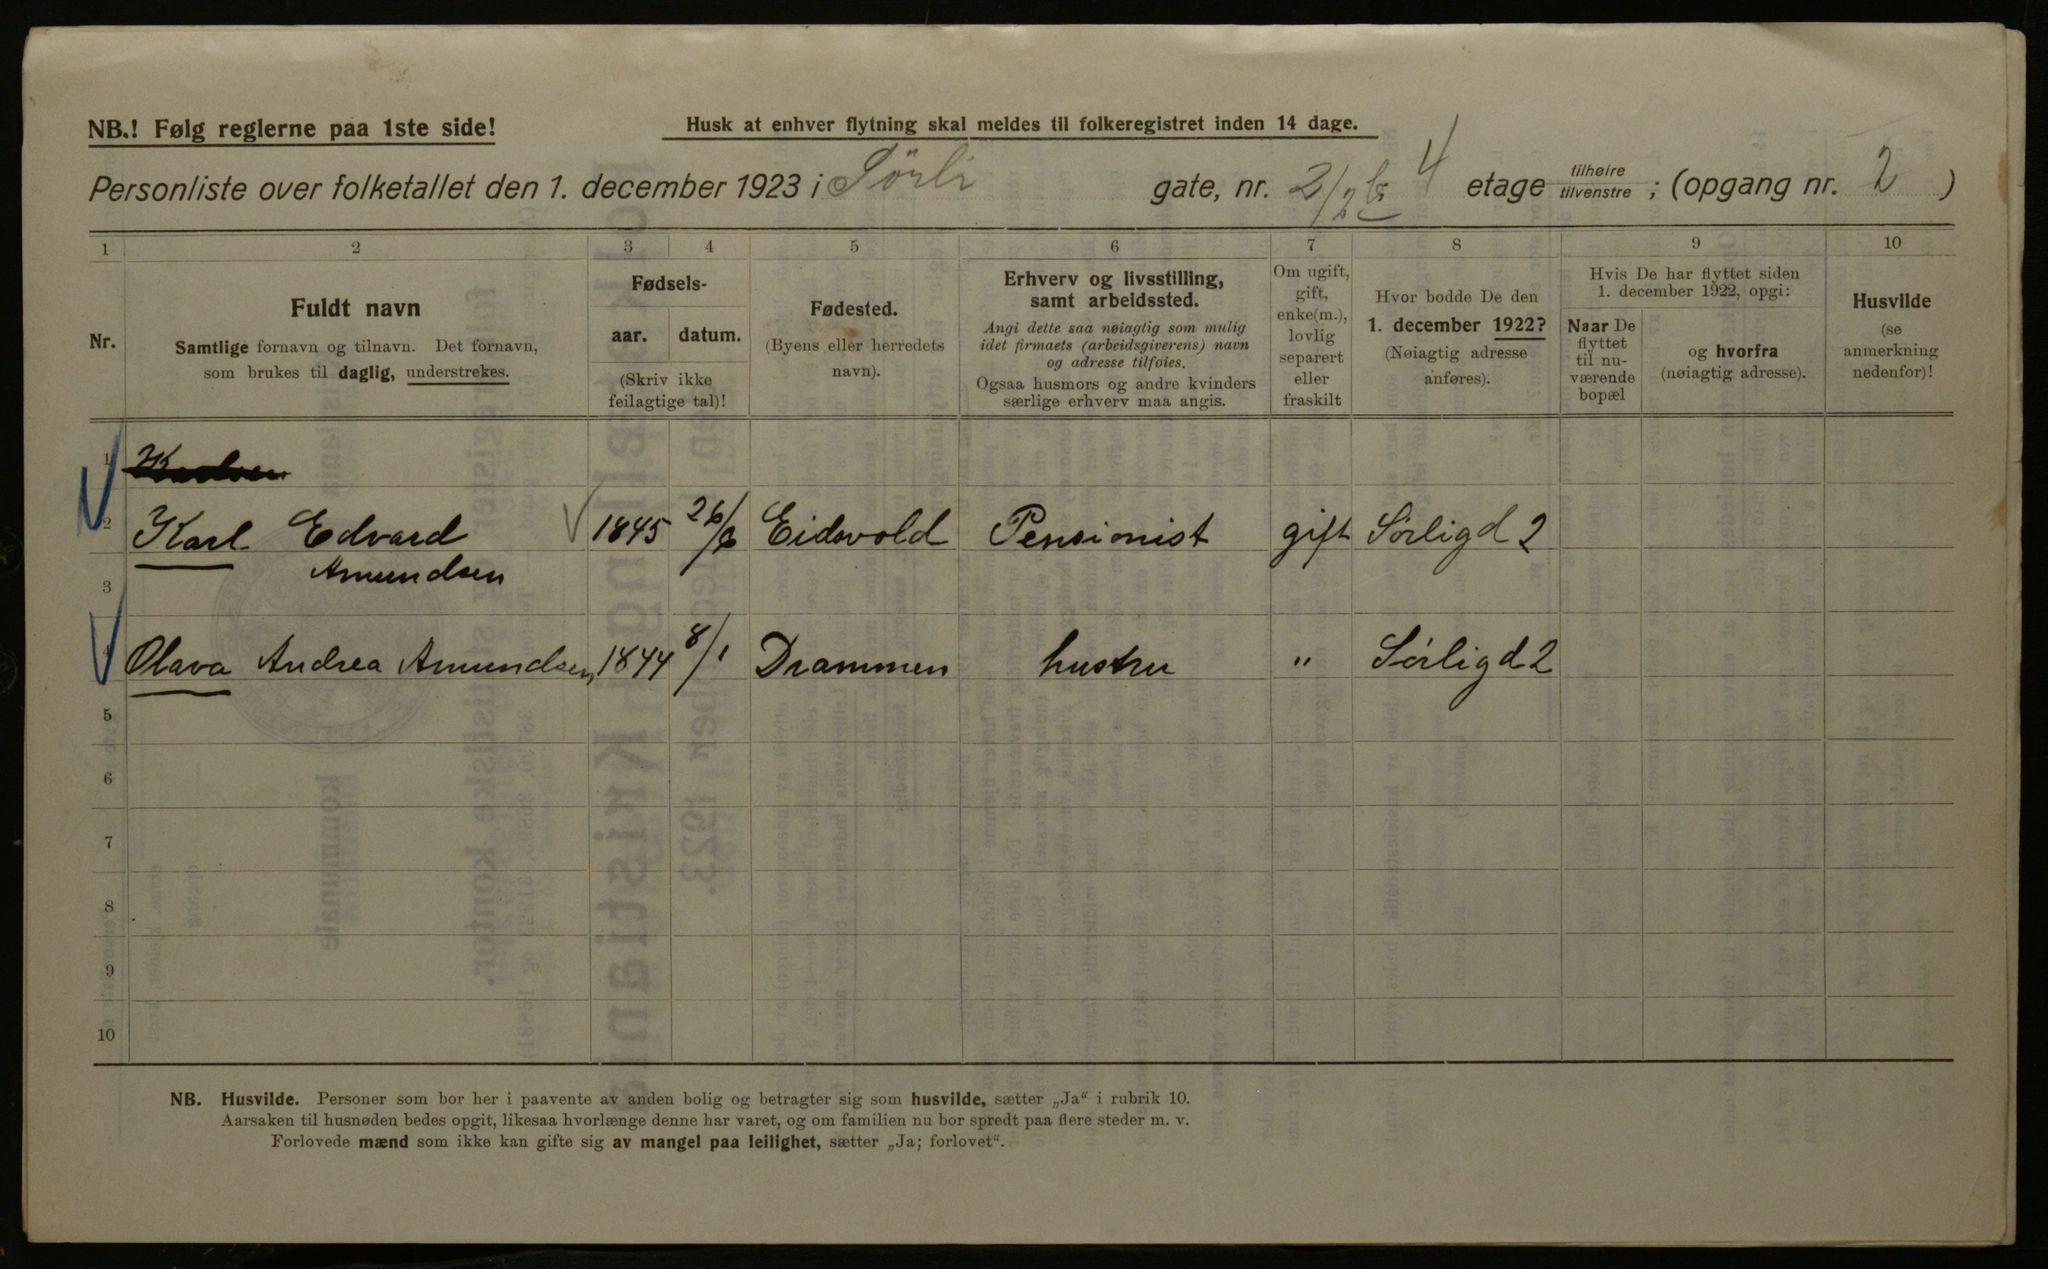 NB.! Følg reglerne paa 1ste side!
Husk at enhver flytning skal meldes til folkeregistret inden 14 dage.
Personliste over folketallet den 1. december 1923 i Sörli gate, nr. 2/2b 4 etage tilhøire tilvenstre; (opgang nr. 2)
1 2 3 4 5 6 7 8 9 10
Nr.
Fuldt navn
Samtlige fornavn og tilnavn. Det fornavn,
som brukes til daglig, understrekes.
Fødsels-
aar. datum.
(Skriv ikke
feilagtige tal)!
Fødested.
(Byens eller herredets
navn).
Erhverv og livsstilling,
samt arbeidssted.
Angi dette saa nøiagtig som mulig
idet firmaets (arbeidsgiverens) navn
og adresse tilføies.
Ogsaa husmors og andre kvinders
særlige erhverv maa angis.
Om ugift,
gift,
enke(m.),
lovlig
separert
eller
fraskilt
Hvor bodde De den
1. december 1922?
(Nøiagtig adresse
anføres).
Hvis De har flyttet siden
1. december 1922, opgi:
Naar De
flyttet
til nu-
værende
bopæl
og hvorfra
(nøiagtig adresse).
Husvilde
(se
anmerkning
nedenfor)!
1
2 Karl Edvard 1845 26/8 Eidsvold Pensionist gift Sørligd 2
3 Amundsen
4 Olava Andrea Amundsen, 1844 8/1 Drammen hustru " Sørligd 2
5
6
7
8
9
10
NB. Husvilde. Personer som bor her i paavente av anden bolig og betragter sig som husvilde, sætter „Ja" i rubrik 10.
Aarsaken til husnøden bedes opgit, likesaa hvorlænge denne har varet, og om familien nu bor spredt paa flere steder m. v.
Forlovede mænd som ikke kan gifte sig av mangel paa leilighet, sætter „Ja; forlovet".